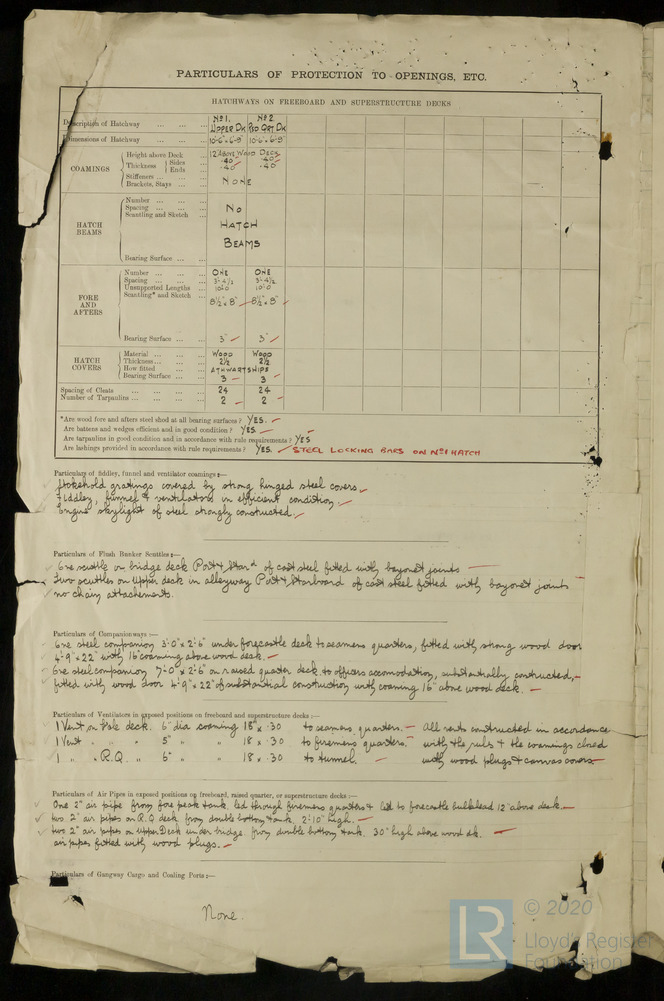 PARTICULARS OF PROTECTION TO OPENINGS, ETC.
HATCHWAYS ON FREEBOARD AND SUPERSTRUCTURE DECKS
Description of Hatchway ... ... ... No 1. UPPER DK No 2 RSD QRT DK
Dimensions of Hatchway ... ... ... 10-6" x 6-9" 10-6" x 6-9"
COAMINGS
Height above Deck ... 12" ABOVE WOOD DECK
Thickness Sides ... .40 .40
Ends ... .40 .40
Stiffeners ... ...
Brackets, Stays ... ... NONE
HATCH BEAMS
Number ... ... ...
Spacing ... ... ... No
Scantling and Sketch ...
HATCH
BEAMS
Bearing Surface ... ...
FORE AND AFTERS
Number ... ... ... ONE ONE
Spacing ... ... ... 3'-4½ 3'-4½
Unsupported Lengths ... 10-0 10-0
Scantling* and Sketch ... 8½" x 8" 8½" x 8"
Bearing Surface ... ... 3" 3"
HATCH COVERS
Material ... ... ... WOOD WOOD
Thickness ... ... ... 2½ 2½
How fitted ... ... ATHWARTSHIPS
Bearing Surface ... ... 3 3
Spacing of Cleats ... ... ... 24 24
Number of Tarpaulins ... ... ... 2 2
*Are wood fore and afters steel shod at all bearing surfaces? YES.
Are battens and wedges efficient and in good condition? YES
Are tarpaulins in good condition and in accordance with rule requirements? YES
Are lashings provided in accordance with rule requirements? YES. STEEL LOCKING BARS ON No 1 HATCH
Particulars of fiddley, funnel and ventilator coamings:—
Stokehold gratings covered by strong hinged steel covers
Fiddley, funnel & ventilators in efficient condition.
Engine skylight of steel strongly constructed.
Particulars of Flush Bunker Scuttles:—
One scuttle on bridge deck Port & Starbd of cast steel fitted with bayonet joints
Two scuttles on upper deck in alleyway Port & Starboard of cast steel fitted with bayonet joints
no chain attachements.
Particulars of Companionways:—
One steel companion 3'-0" x 2'-6" under forecastle deck to seamens quarters, fitted with strong wood door
4'-9" x 22" with 16" coaming above wood deck.
One steel companion 7'-0" x 2'-6" on raised quater deck to officers accomodation, substantially contructed,
fitted with wood door 4'-9" x 22" of substantial construction with coaming 16" above wood deck.
Particulars of Ventilators in exposed positions on freeboard and superstructure decks:—
1 Vent on Fsle deck. 6" dia coaming 18" x .30 to seamens quarters. All vents constructed in accordance
1 Vent " " " 5" " " 18 x .30 to firemens quarters. with the rules & the coamings closed
1 " " R.Q. " 6" " " 18 x .30 to tunnel. with wood plugs & canvas covers
Particulars of Air Pipes in exposed positions on freeboard, raised quarter, or superstructure decks:—
One 2" air pipe from fore peak tank, led through firemens quarters & led to forecastle bulkhead 12" above deck.
two 2" air pipes on R.Q deck from double bottom tank 2'-10" high.
two 2" air pipes on upper Deck under bridge from double bottom tank 30" high above wood dk.
air pipes fitted with wood plugs.
Particulars of Gangway Cargo and Coaling Ports:—
None.
LR
© 2020
Lloyd's Register
Foundation